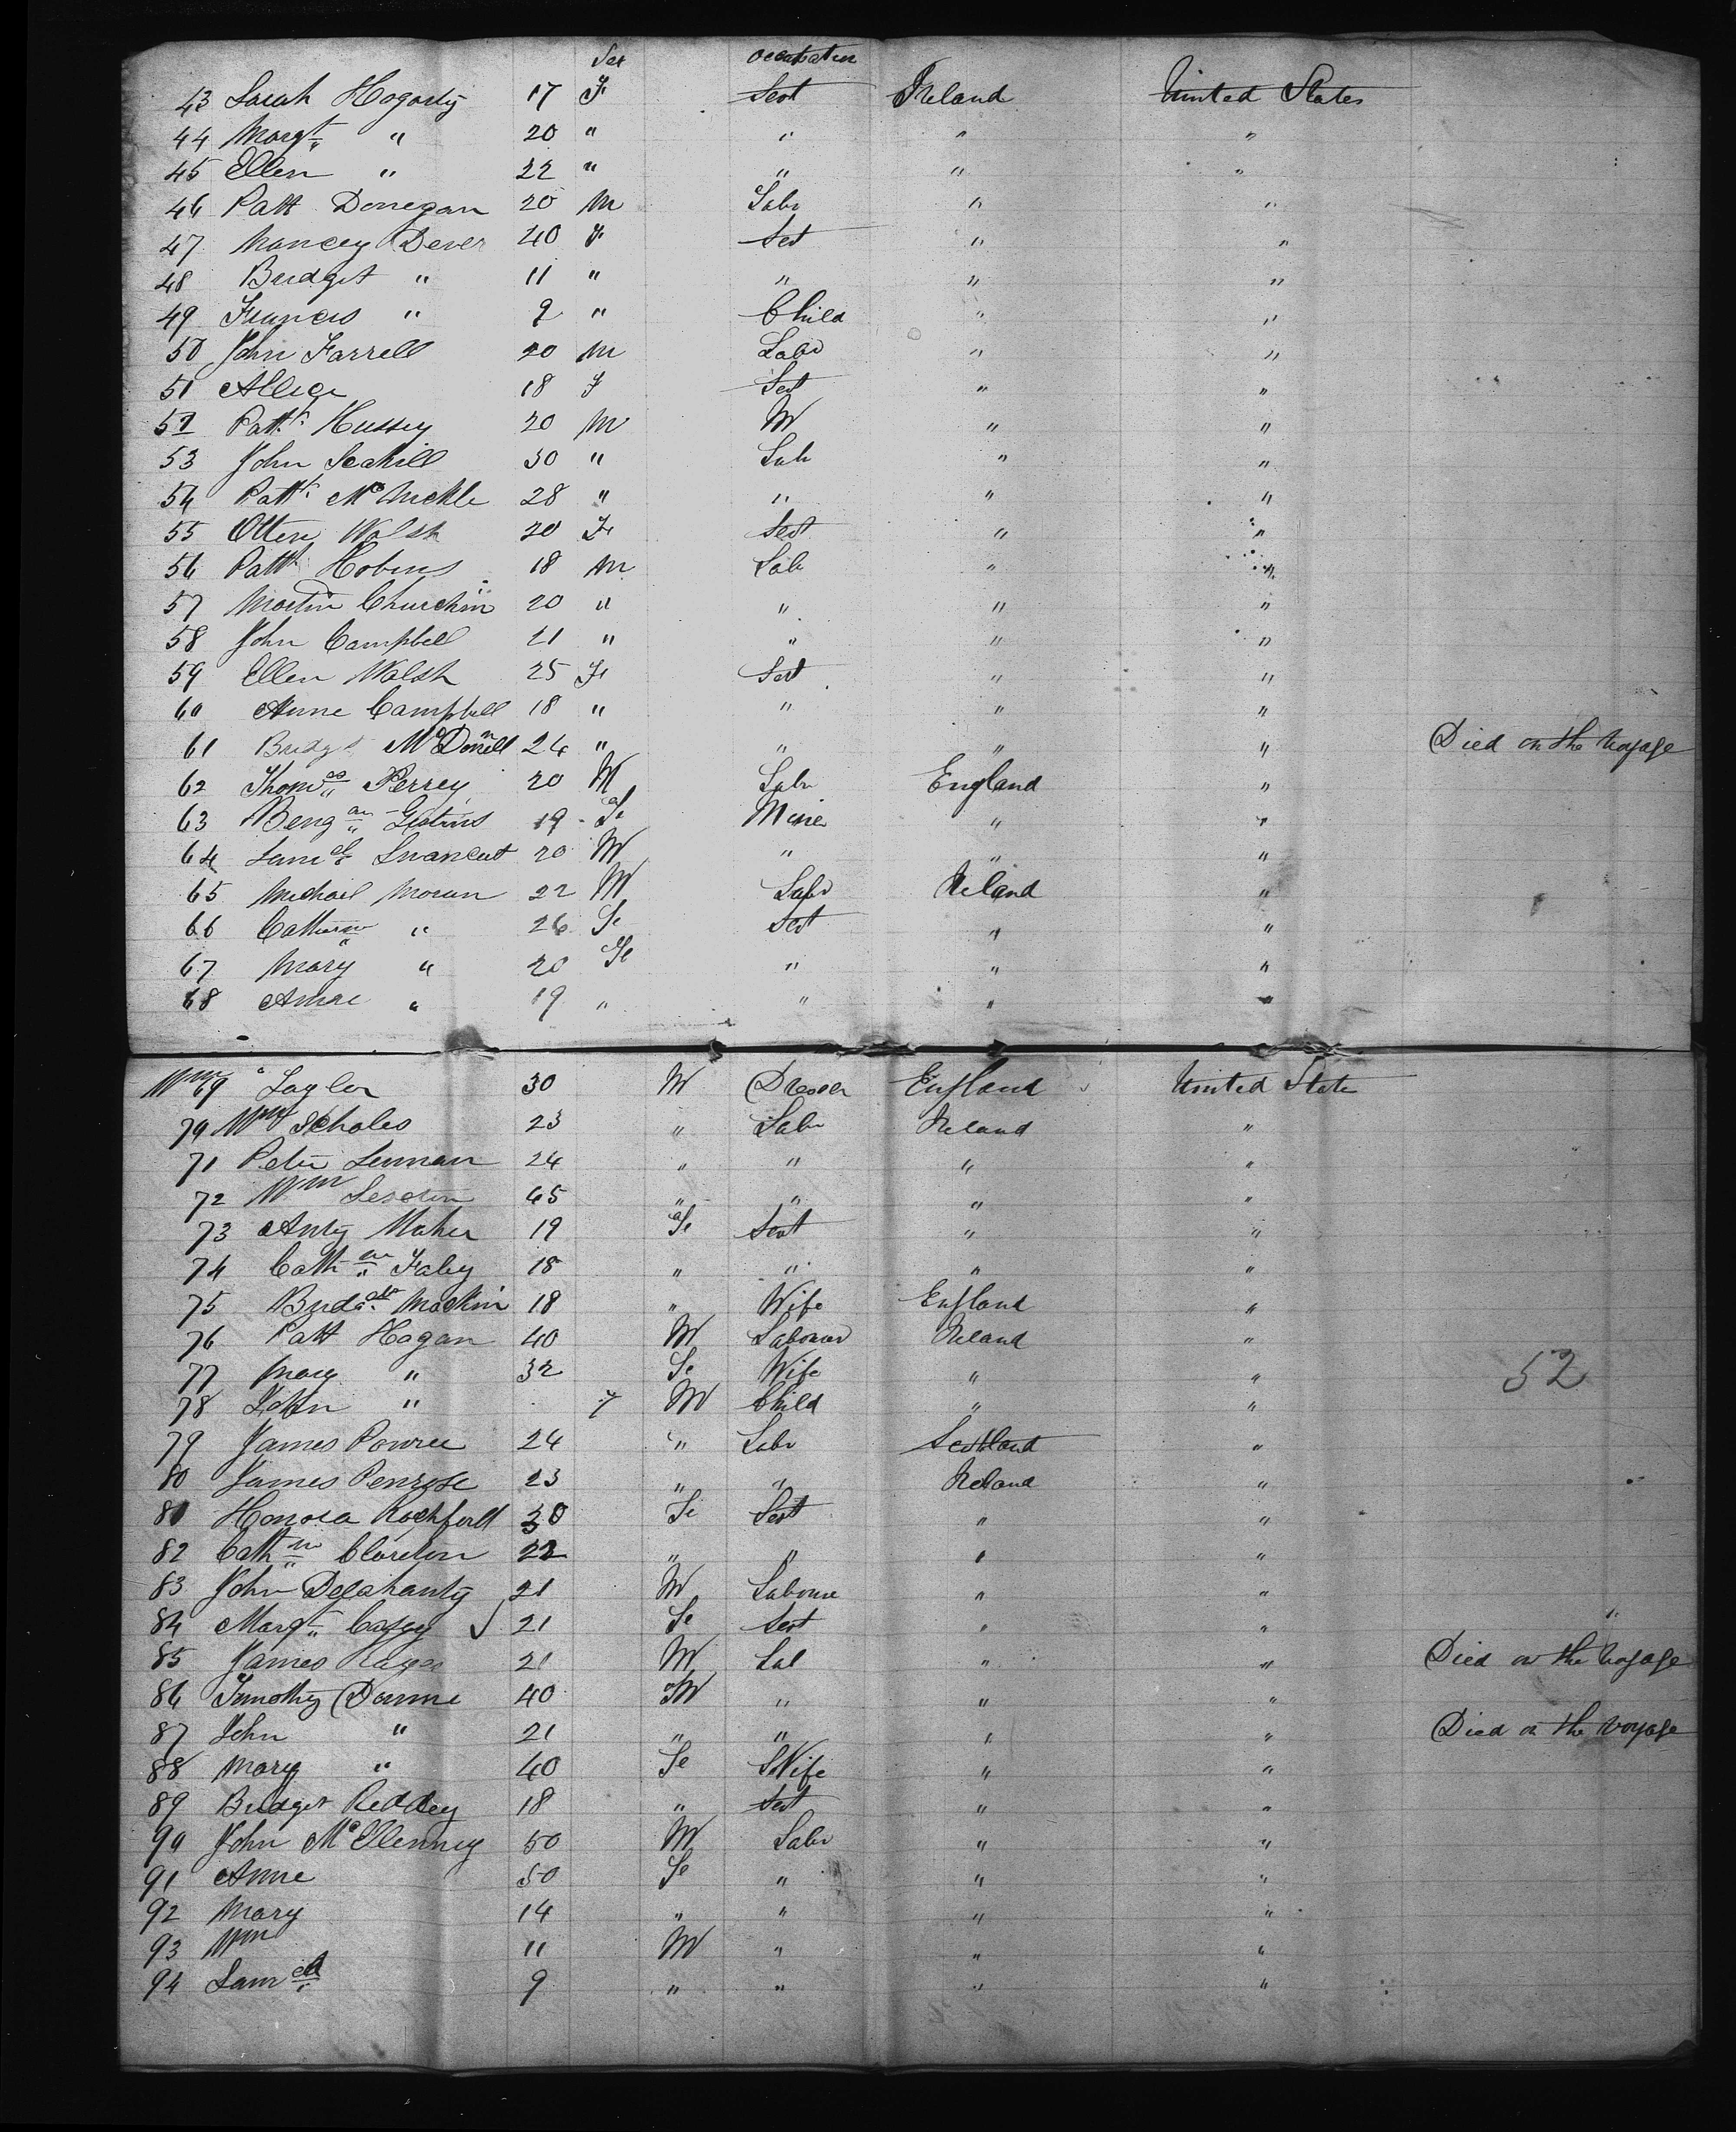 Sex Occupation
43 Sarah Hogarty 17 F Servt Ireland United States
44 Margt " 20 " " " "
45 Ellen " 22 " " " "
46 Patt Donegan 20 M Labr " "
47 Nancey Dever 40 F Servt " "
48 Bridget " 11 " " " "
49 Frances " 9 " Child " "
50 John Farrell 20 M Labr " "
51 18 F Servt " "
52 Pattk Hussey 20 M " "
53 John Scahill 30 " Lab " "
54 Pattk Mc Nickle 28 " " " "
55 Walsh 20 Fe Servt " "
56 Pattk Hobins 18 M Lab " "
57 Martin Churchin 20 " " " "
58 John Campbell 21 " " " "
59 Ellen Walsh 25 Fe Servt " "
60 Anne Campbell 18 " " " "
61 Bridgt McDonnell 24 " " " " Died on the Voyage
62 Thomas Perrey 20 M Labr England "
63 19 Fe Miner " "
64 Saml 20 M " " "
65 Michael Moran 22 M Labr Ireland "
66 Catherine " 26 Fe Servt " "
67 Mary " 20 Fe " " "
68 Anne " 19 " " " "
Wm 69 Taylor 30 M Dresser England United State
70 Wm Scholes 23 " Labr Ireland "
71 Peter Lennan 24 " " " "
72 Wm 65 " " " "
73 Anty Maher 19 Fe Servt " "
74 Cathne Fahy 18 " " " "
75 Bridget Mackin 18 " Wife England "
76 Patt Hogan 40 M Labourer Ireland "
77 Mary " 32 Fe Wife " " 52
78 John " 7 M Child " "
79 James Powree 24 " Labr Scotland "
80 James Penrose 23 " " Ireland "
81 Honora Rochfort 30 Fe Servt " "
82 Cathne 22 " " " "
83 John Delahanty 21 M Laboure " "
84 Margt Casey 21 Fe Servt " "
85 James Hayes 21 M Lab " " Died on the Voyage
86 Timothy Dunne 40 M " " "
87 John " 21 " " " " Died on the Voyage
88 Mary " 40 Fe Wife " "
89 Bridget Reddey 18 " Servt " "
90 John McElenney 50 M Labr " "
91 Anne 50 Fe " " "
92 Mary 14 " " " "
93 Wm 11 M " " "
94 Samel 9 " " " "